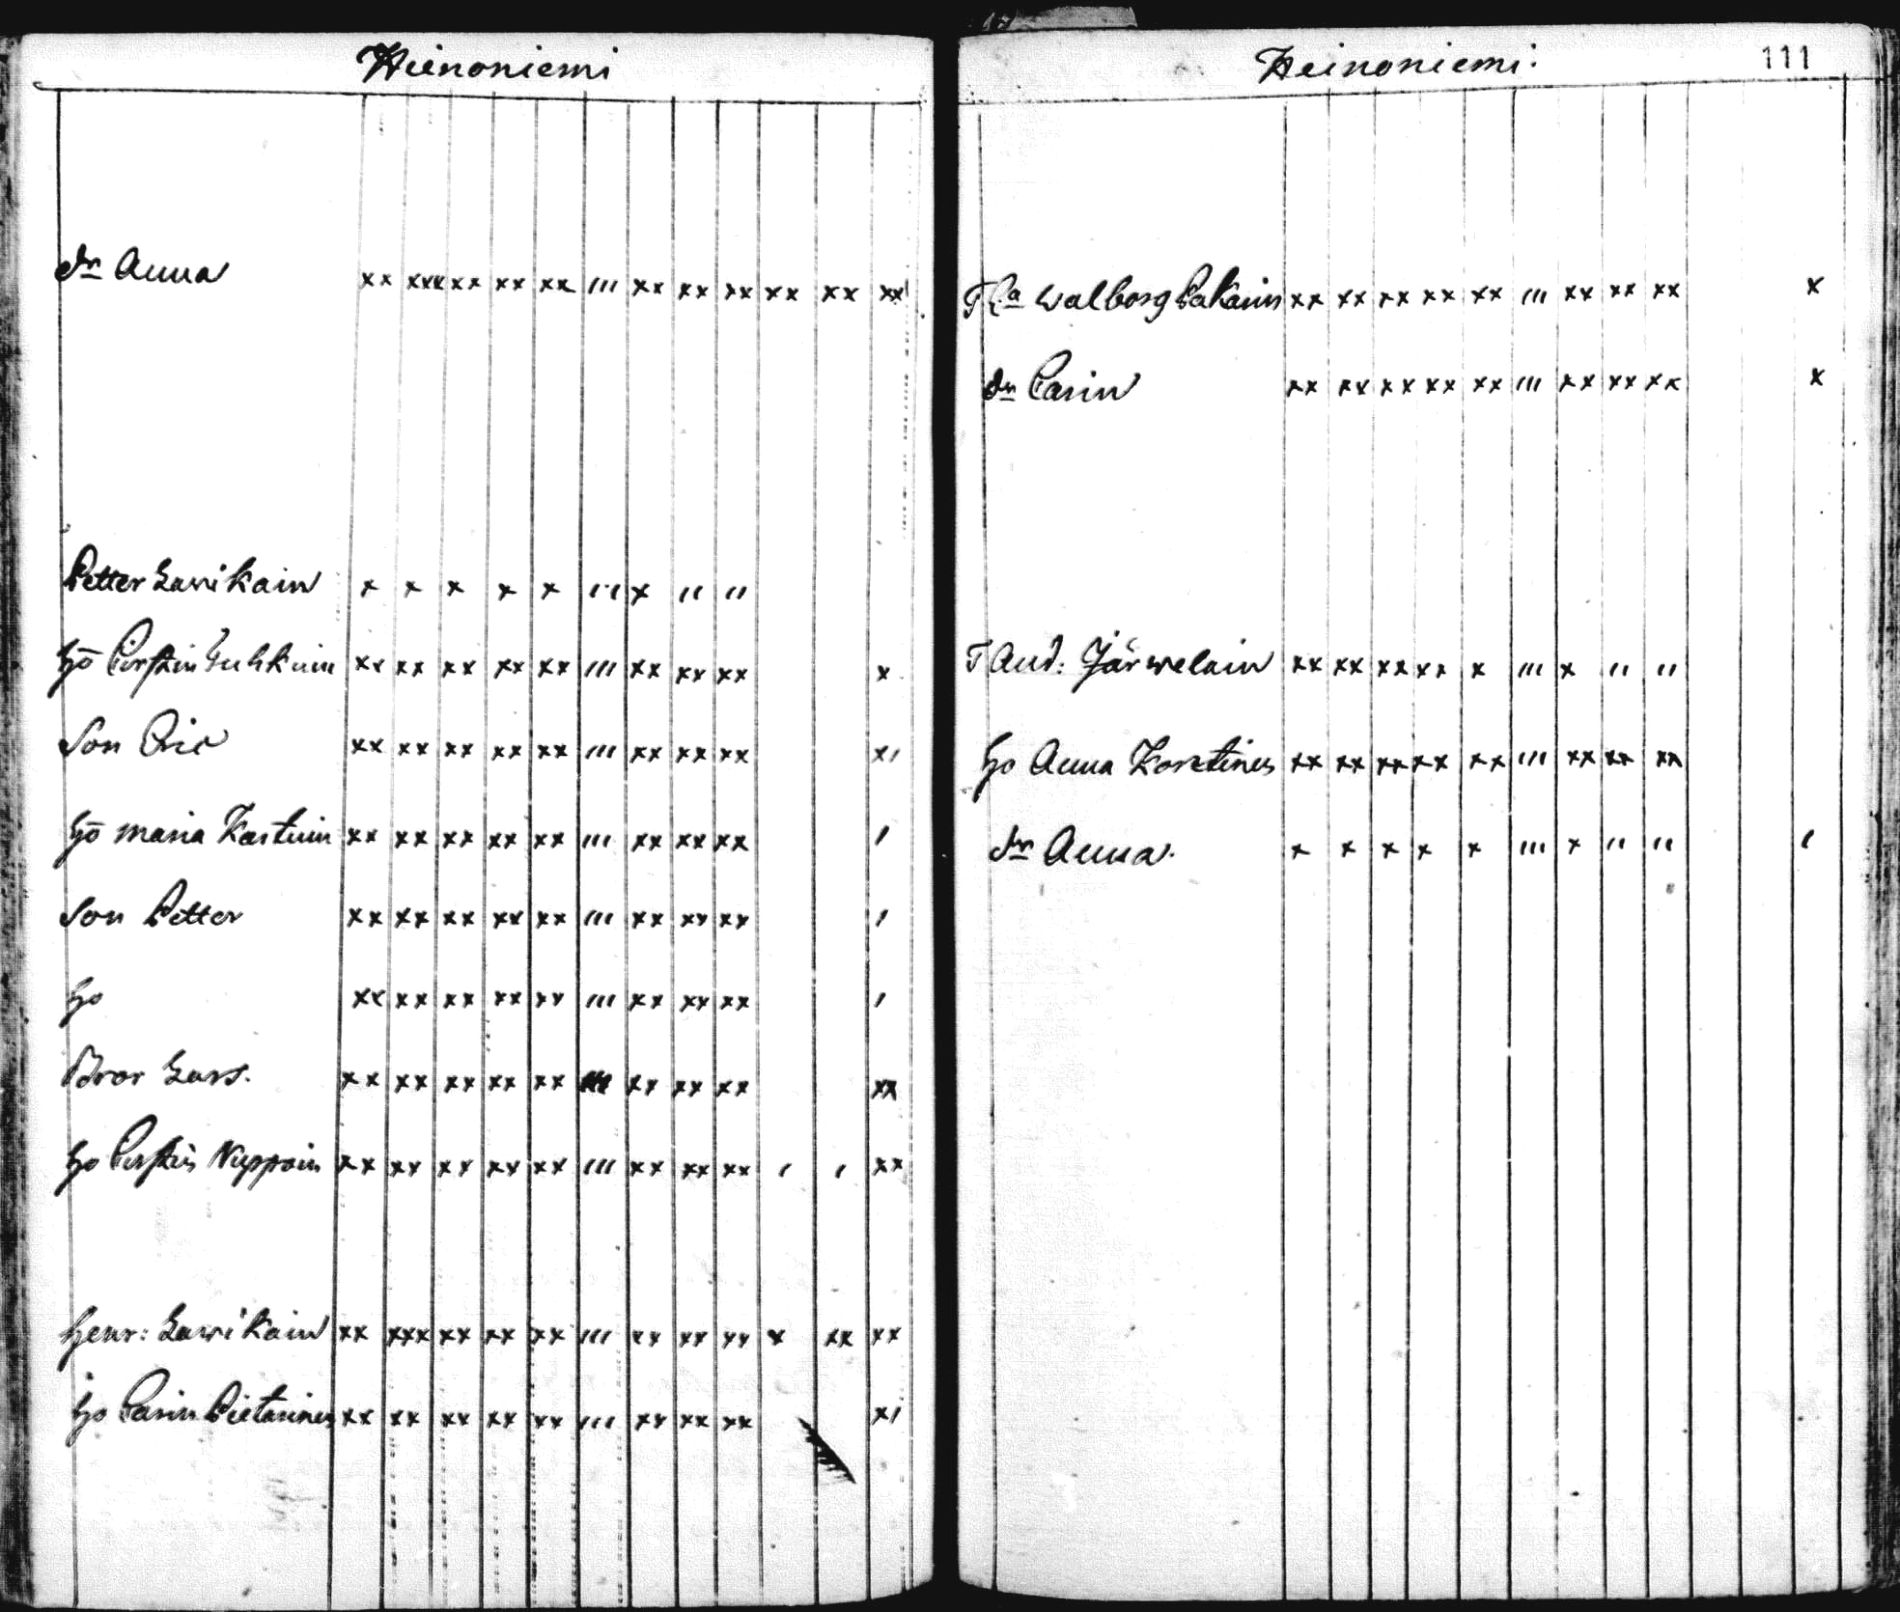 Hienoniemi
dr Anna xx xxx xx xx xx ııı xx xx xx xx xx xx
Petter Lavikain x x x x x ııı x ıı ıı
ho Cirstin xx xx xx xx xx ııı xx xx xx x
Son Eric xx xx xx xx xx ııı xx xx xx xı
ho Maria xx xx xx xx xx ııı xx xx xx ı
Son Petter xx xx xx xx xx ııı xx xx xx ı
ho xx xx xx xx xx ııı xx xx xx ı
Bror Lars. xx xx xx xx xx ııı xx xx xx xx
ho Cirstin Nuppoin xx xx xx xx xx ııı xx xx xx ı ı xx
Henr: Lavikain xx xxx xx xx xx ııı xx xx xx x xx xx
ho Carin Pietarinen xx xx xx xx xx ııı xx xx xx xı
Heinoniemi. 111
Walborg Pakarin xx xx xx xx xx ııı xx xx xx x
dr Carin xx xx xx xx xx ııı xx xx xx x
And: Järwelain xx xx xx xx x ııı x ıı ıı
ho Anna xx xx xx xx xx ııı xx xx xx
dr Anna. x x x x x ııı x ıı ıı ı